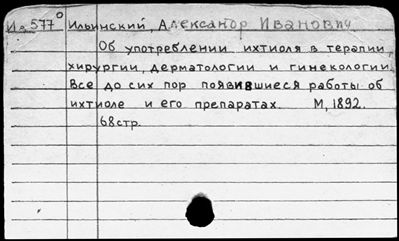 Из 577° Ильинский, Александр Иванович
Об употреблении ихтиола в терапии,
хирургии, дерматологии и гинекологии.
Все до сих пор появившиеся работы об
ихтиоле и его препаратах. М, 1892.
68стр.